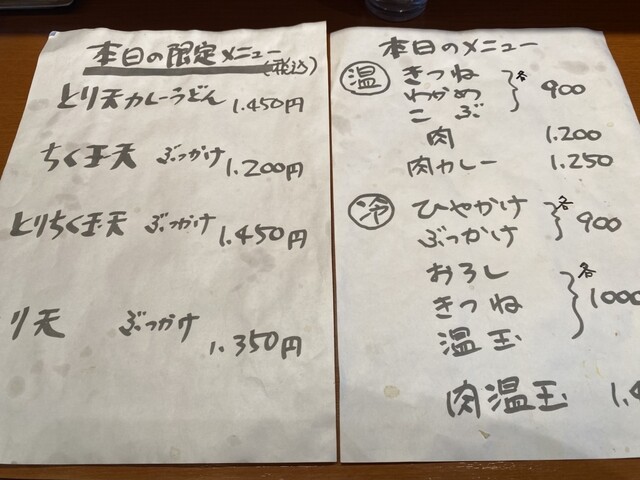 本日の限定メニュー(税込)
とり天カレーうどん 1.450円
ちく玉天 ぶっかけ 1.200円
とりちく玉天 ぶっかけ 1.450円
り天 ぶっかけ 1.350円
本日のメニュー
温 きつね
わかめ 各 900
こぶ
肉 1.200
肉カレー 1.250
冷 ひやかけ 各 900
ぶっかけ
おろし
きつね 各 1000
温玉
肉温玉 1.4